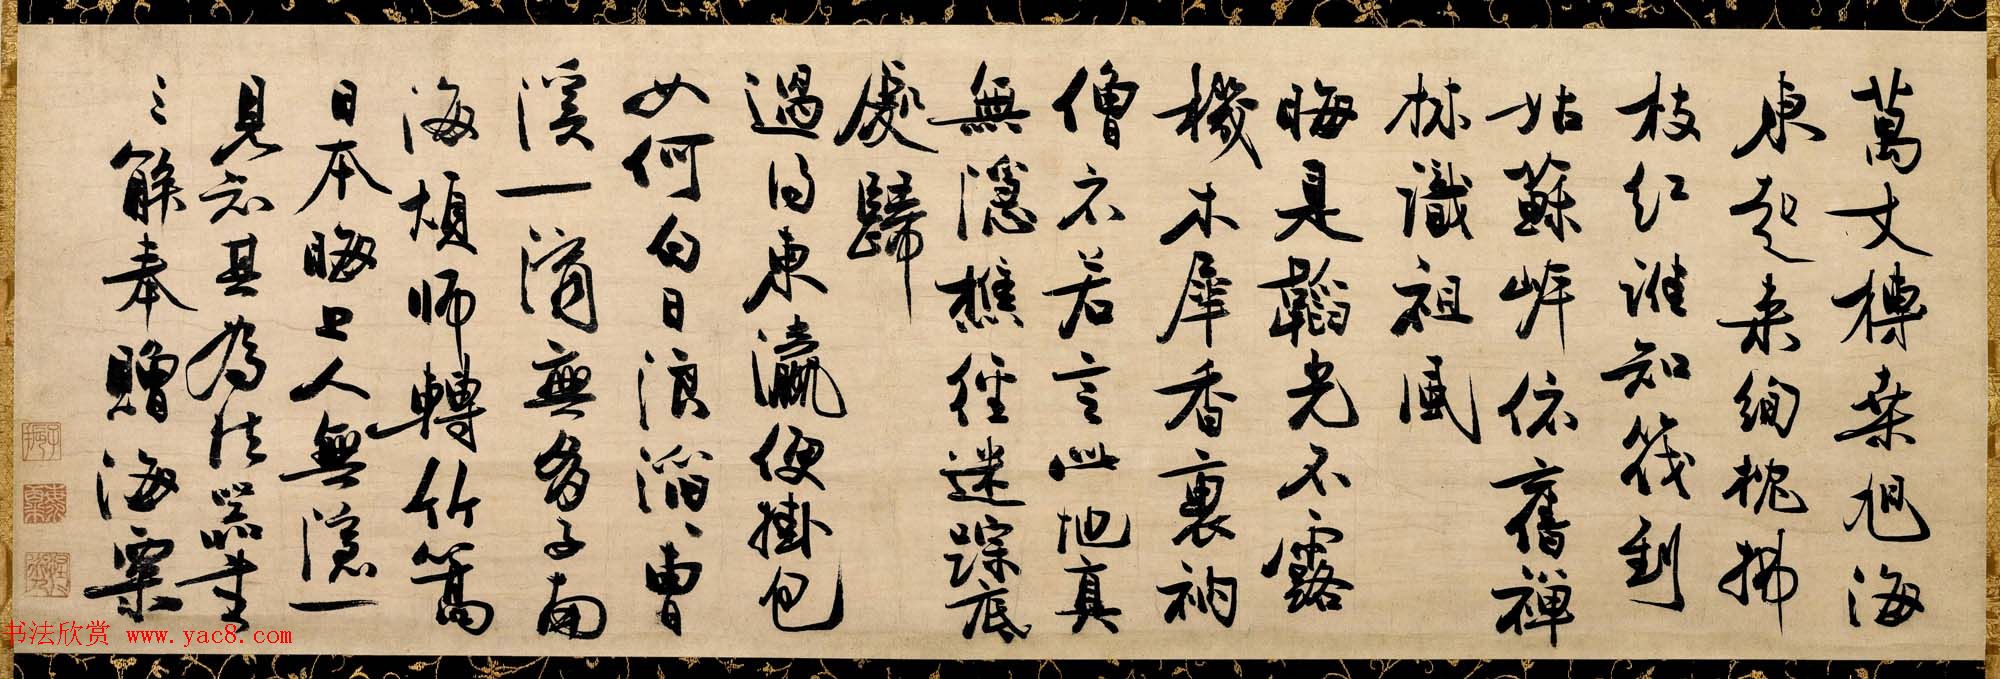 萬丈榑桑旭海
東起來絢拂
枝紅誰知筏到
姑蘇岸依舊禪
林識祖風
晦是韜光不露
機木犀香裏衲
僧衣若言此地真
無隱樵徑迷蹤底
處歸
過得東瀛便掛包
如何白日浪滔〻曹
溪一滴無多子南
海煩師轉竹篙
日本晦上人無隱一
見知其為法器書
三解奉贈海粟
书法欣赏 www.yac8.com